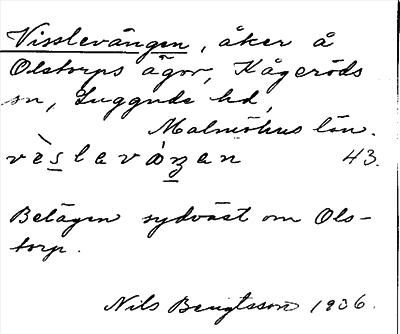 Visslevången, åker å
Olstorps ägor, Kågeröds
sn, Luggude hd,
Malmöhus län.
vèslevåŋan 43.
Belägen sydväst om Ols-
torp.
Nils Bengtsson 1936.